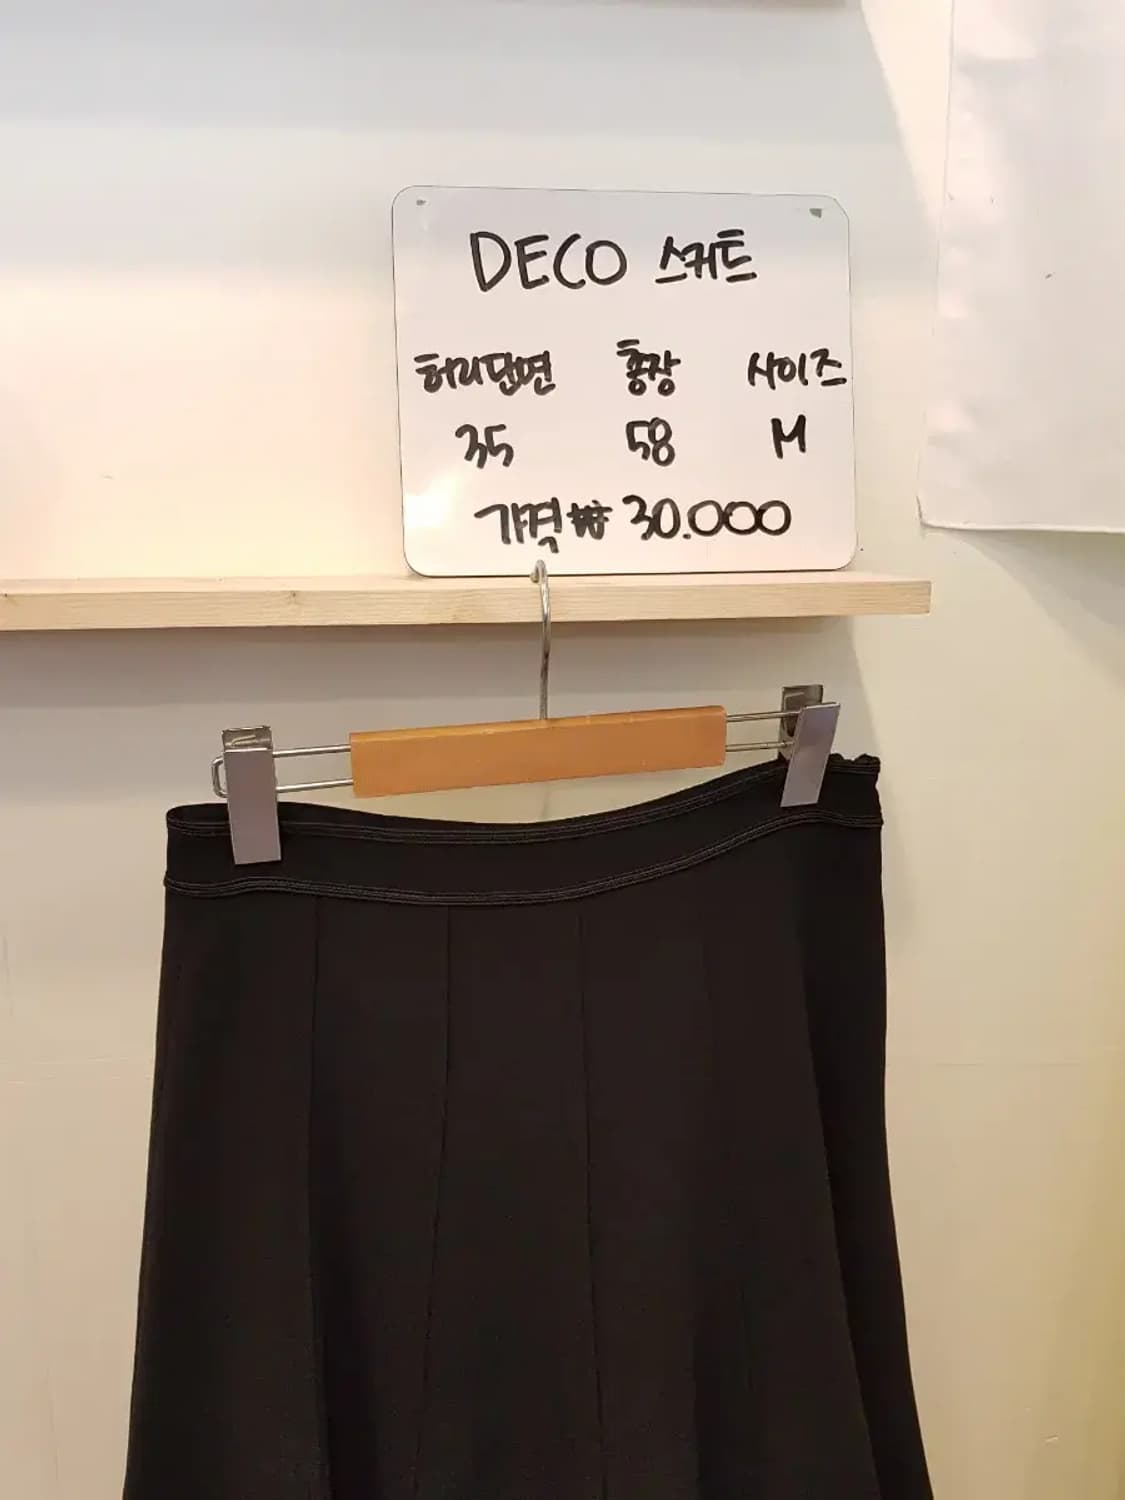 DECO 스커트
허리단면 총장 사이즈
35 58 M
가격 ₩ 30.000